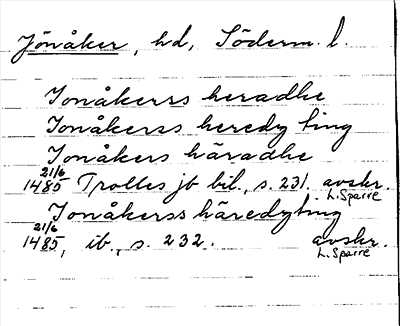 Jönåker, hd, Söderm. l.
Jonåkerss heradhe
Jonåkerss heredy ting
Jonåkers häradhe
21/6
1485 Trolles jb bil., s. 231. avskr.
L. Sparre
Jonåkerss häredyting
21/6
1485, ib., s. 232. avskr.
L. Sparre